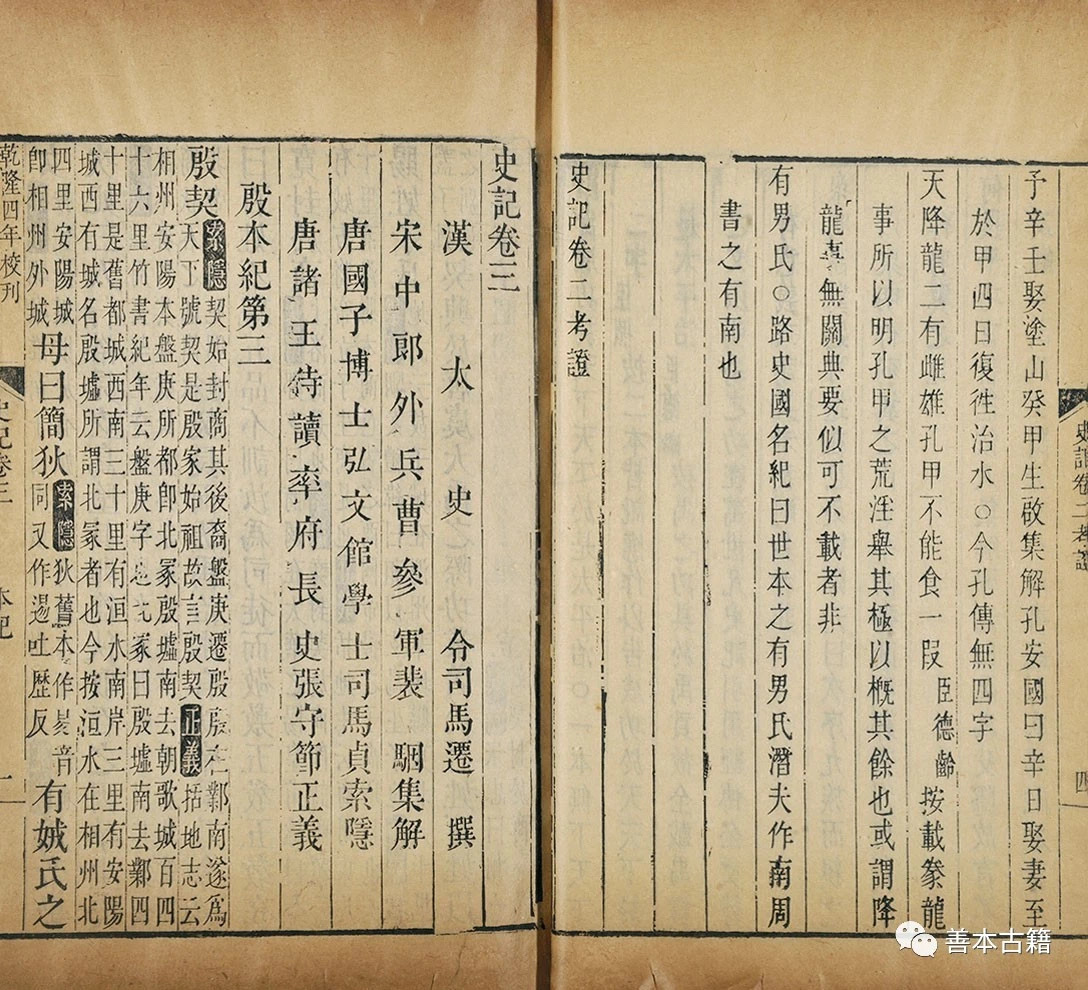 史記卷二考證
四
予辛壬娶塗山癸甲生啟集解孔安國曰辛日娶妻至
於甲四日復徃治水○今孔傳無四字
天降龍二有雌雄孔甲不能食一段臣德齡按載豢龍
事所以明孔甲之荒淫舉其極以概其餘也或謂降
龍嘉無關典要似可不載者非
有男氏○路史國名紀曰世本之有男氏潛夫作南周
書之有南也
史記卷二考證
史記卷三
漢太史令司馬遷撰
宋中郎外兵曹參軍裴駰集解
唐國子博士弘文館學士司馬貞索隱
唐諸王侍讀率府長史張守節正義
殷本紀第三
殷契索隱契始封商其後裔盤庚遷殷殷在鄴南遂爲
天下號契是殷家始祖故言殷契正義括地志云
相州安陽本盤庚所都即北冢殷墟南去朝歌城百四
十六里竹書紀年云盤庚字冢曰殷墟南去鄴四
十里是舊都城西南三十里有洹水南岸三里有安陽
城西有城名殷墟所謂北冢者也今按洹水在相州北
四里安陽城
即相州外城母曰簡狄索隱狄舊本作易音
同又作逷吐歷反有娀氏之
乾隆四年校刊
史記卷三
本紀
一
善本古籍